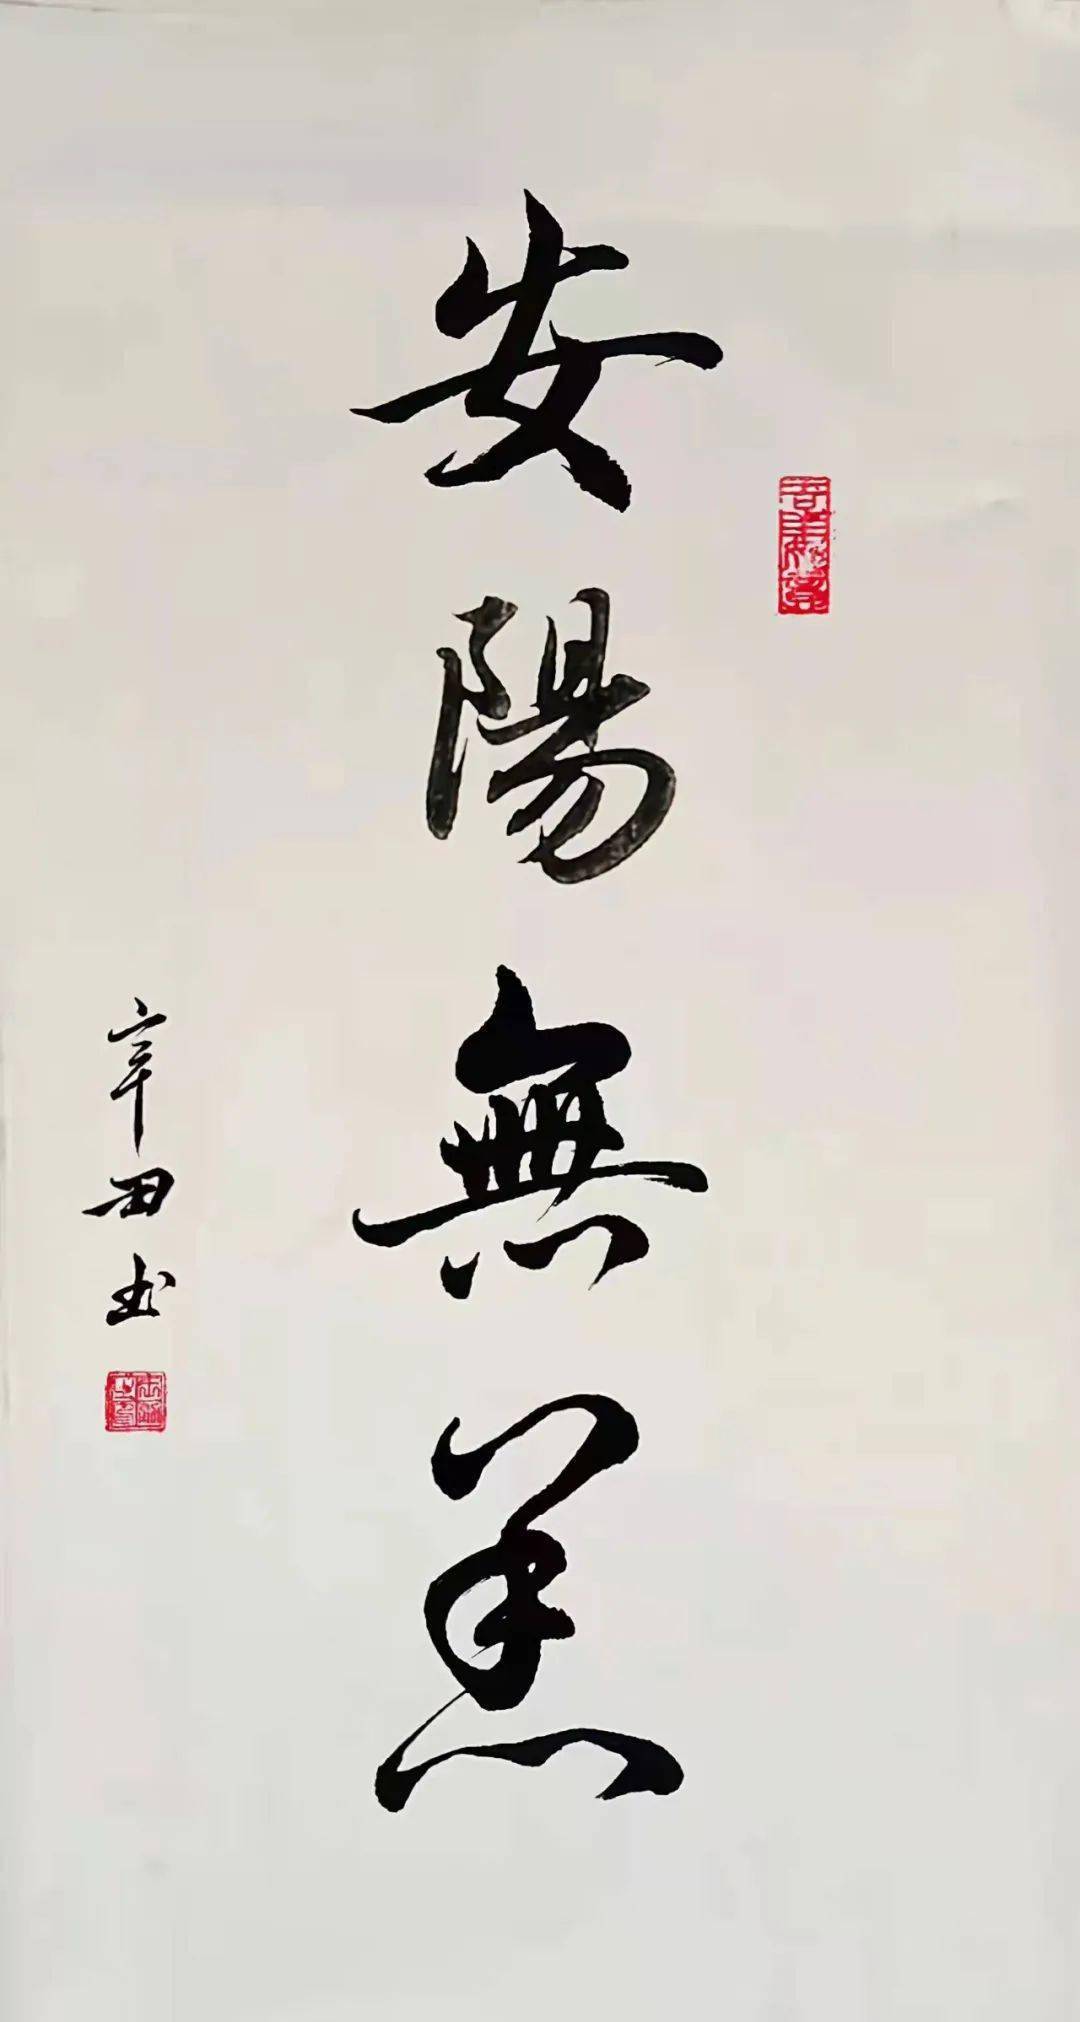 安陽無恙
辛田书